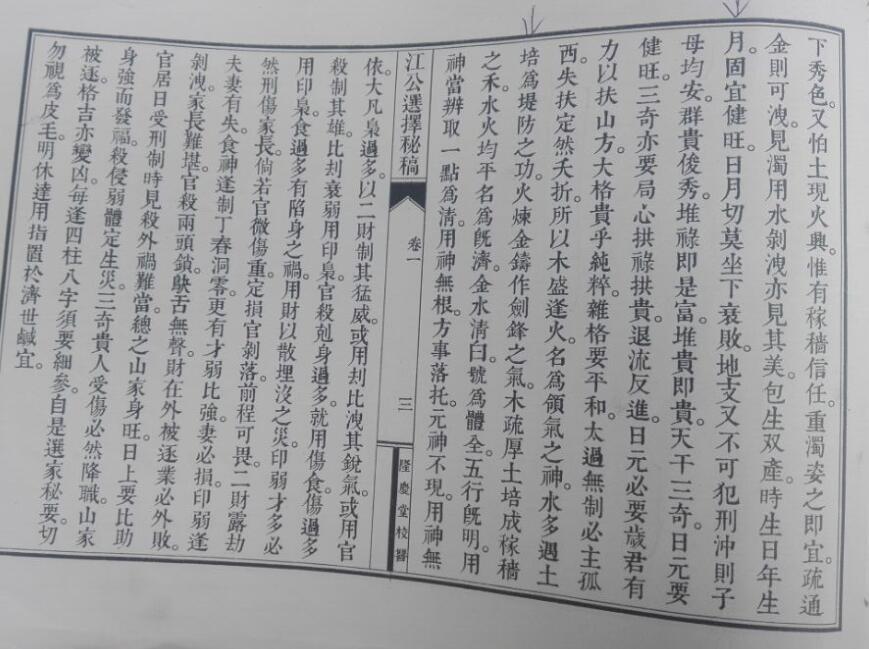 下秀色。又怕土現火興。惟有稼穡信任。重濁姿之即宜。疏通
金則可洩。見濁用水剝洩亦見其美。包生双產。時生日年生
月。固宜健旺。日月切莫坐下衰敗。地支又不可犯刑沖則子
母均安。群貴俊秀。堆祿即是富。堆貴即貴。天干三奇。日元要
健旺。三奇亦要局心拱祿拱貴。退流反進。日元必要歲君有
力以扶山方。大格貴乎純粹。雜格要平和。太過無制必主孤
西。失扶定然夭折。所以木盛逢火。名爲領氣之神。水多遇土
培爲堤防之功。火煉金鑄作劍鋒之氣。木疏厚土培成稼穡
之禾。水火均平名爲旣濟。金水清曰號爲體全。五行旣明。用
神當辨取一點爲清。用神無根。方事落托。元神不現。用神無
江公選擇秘稿
卷一
三
隆慶堂校
依。大凡梟過多。以二財制其猛威。或用刦比洩其銳氣。或用官
殺制其雄。比刦衰弱用印梟。官殺剋身過多。就用傷食。傷過多
用印梟。食過多有陷身之禍。用財以散埋沒之災。印弱才多必
然刑傷家長。倘若官微傷重。定損官剝落前程可畏。二財露劫
夫妻有失。食神逢制丁春洞零。更有才弱比強妻必損。印弱逢
剝洩。家長難堪。官殺兩頭鎖。鴃舌無聲。財在外被逐業必外敗。
官居日受刑制。時見殺外禍難當。總之山家身旺。日上要比助
身強而發福。殺侵弱體定生災。三奇貴人受傷必然降職。山家
被逐。格吉亦變凶。每逢四柱八字須要細參。自是選家秘要。切
勿視爲皮毛。明休達用指置於濟世鹹宜。